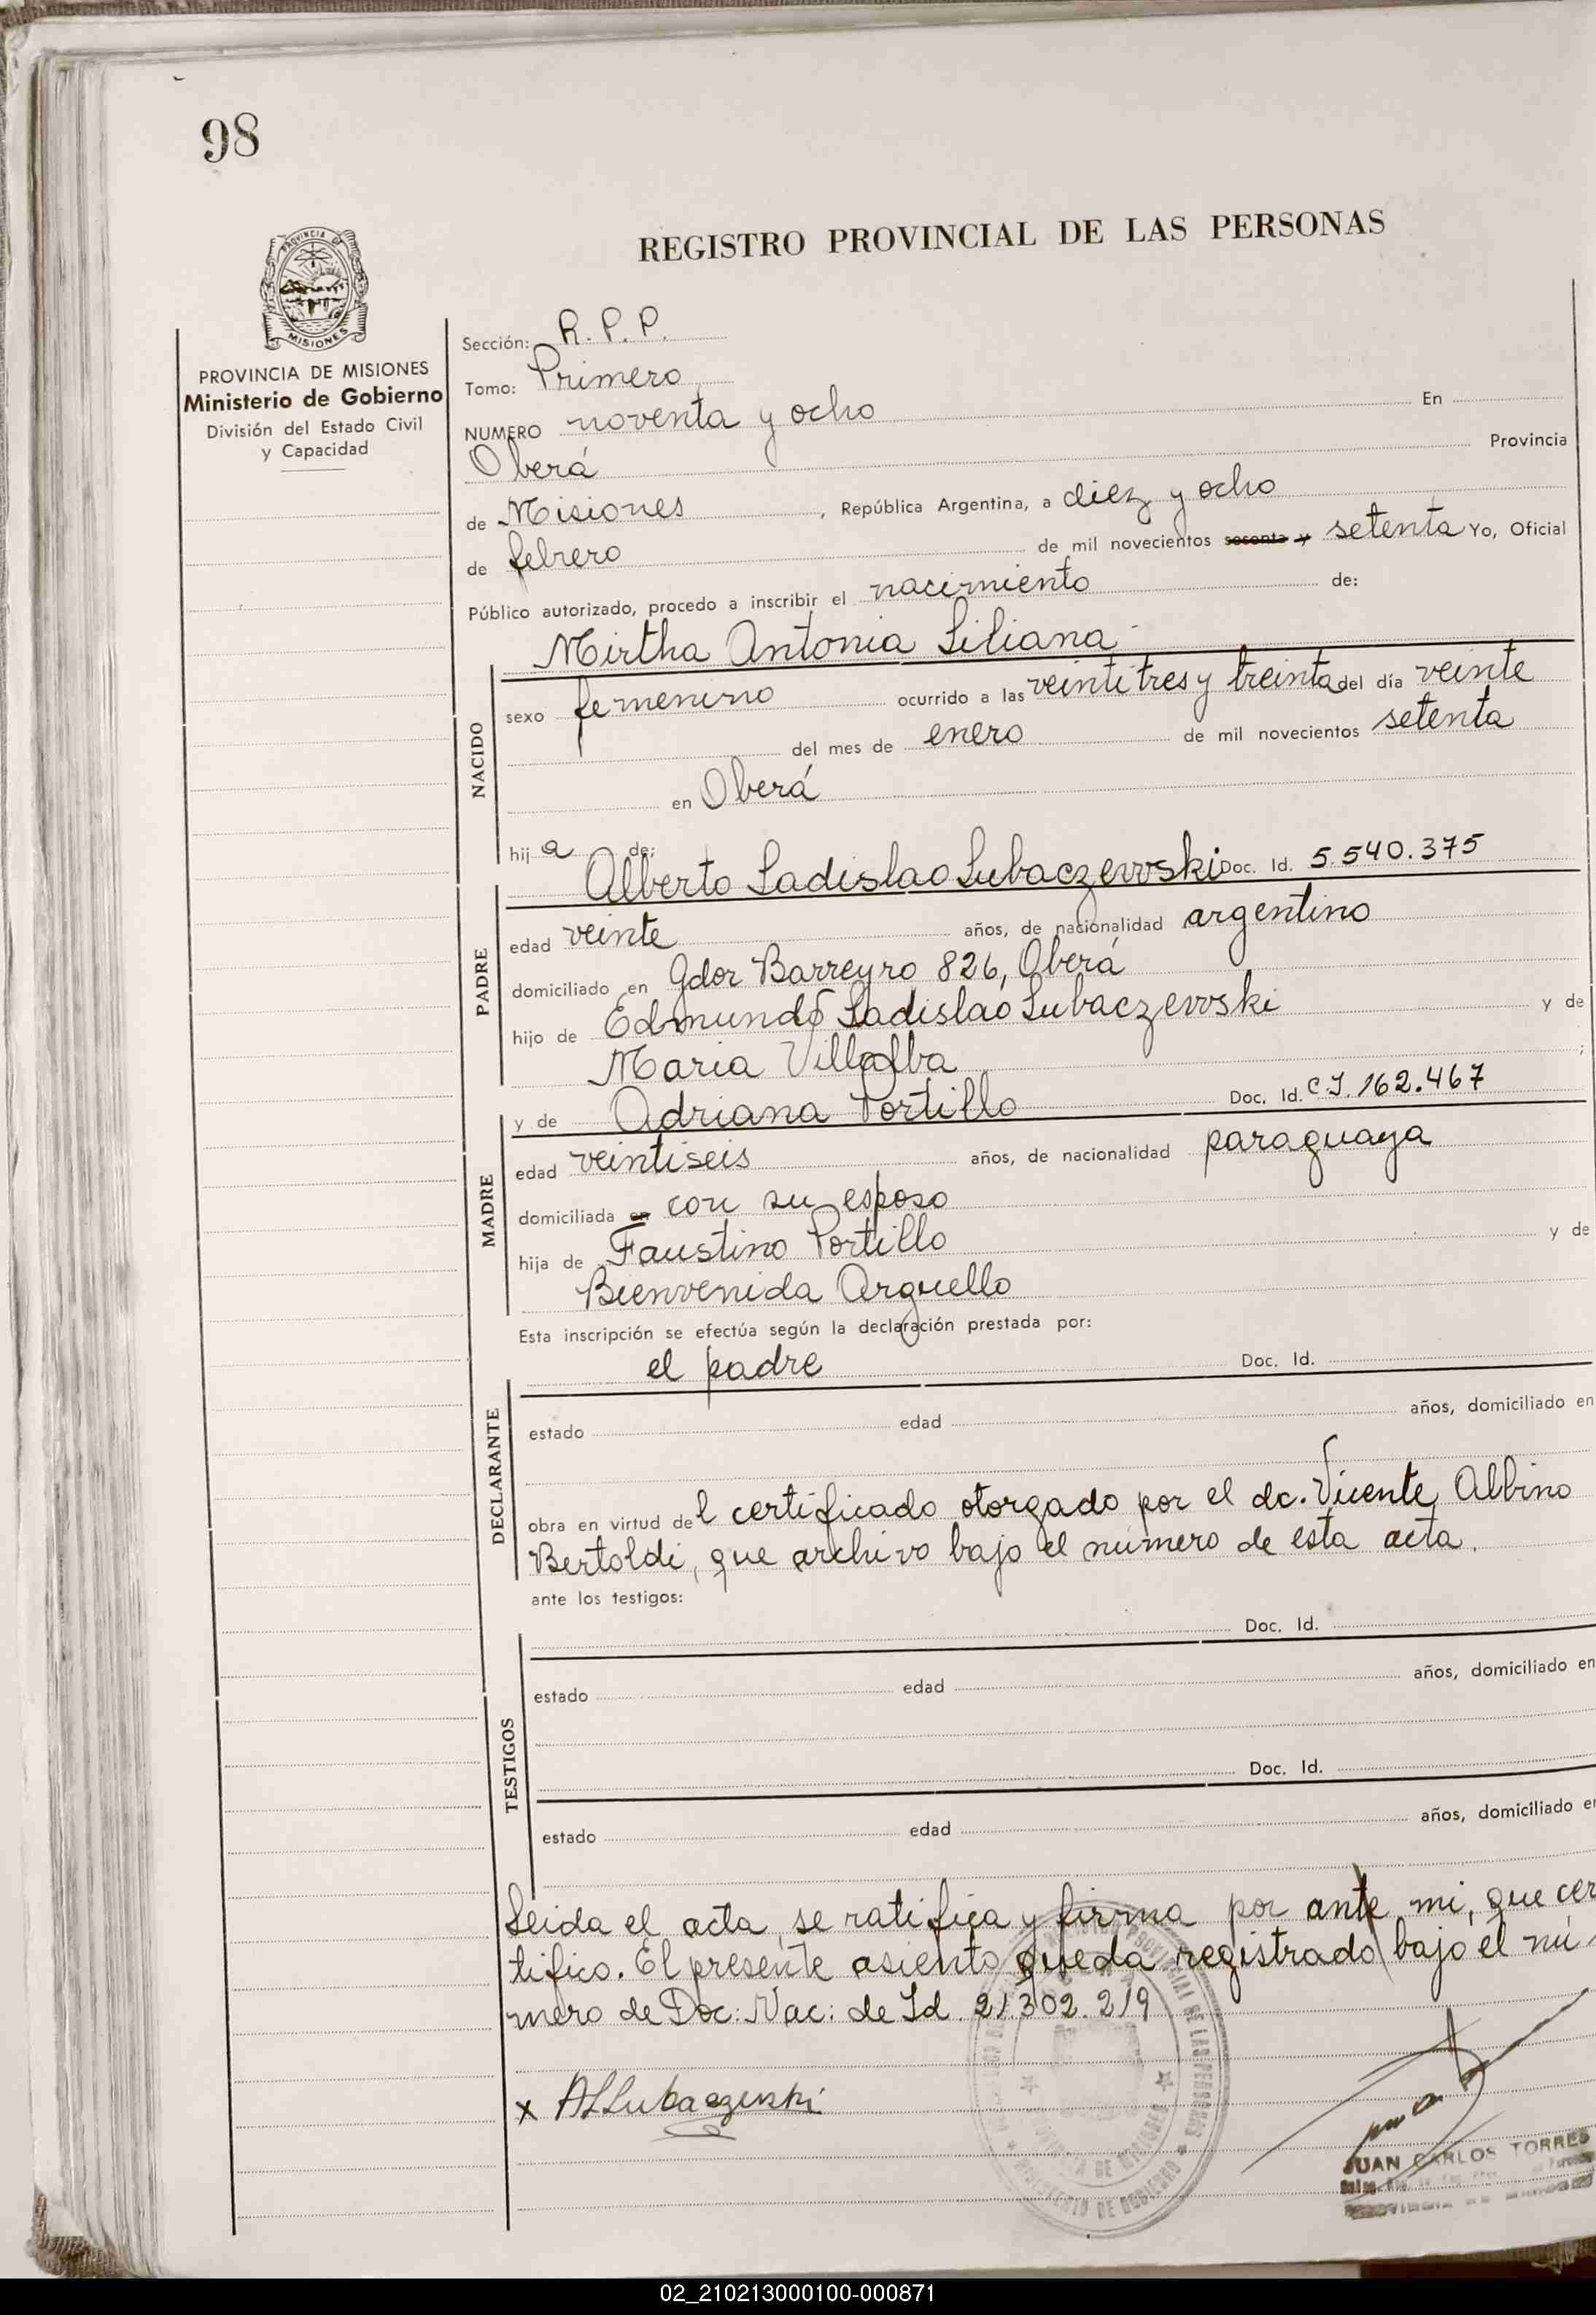 98
REGISTRO PROVINCIAL DE LAS PERSONAS
PROVINCIA DE
MISIONES
PROVINCIA DE MISIONES
Ministerio de Gobierno
División del Estado Civil
y Capacidad
Sección: R. P. P.
Tomo: Primero
NUMERO noventa y ocho En
Oberá Provincia
de Misiones, República Argentina, a diez y ocho
de febrero de mil novecientos sesenta y setenta Yo, Oficial
Público autorizado, procedo a inscribir el nacimiento de:
Mirtha Antonia Liliana
NACIDO
sexo femenino ocurrido a las veintitres y treinta del día veinte
del mes de enero de mil novecientos setenta
en Oberá
hij a de:
Alberto Ladislao Lubaczewski Doc. Id. 5.540.375
PADRE
edad veinte años, de nacionalidad argentino
domiciliado en Gdor Barreyro 826, Oberá
hijo de Edmundo Ladislao Lubaczewski y de
Maria Villalba ;
y de Adriana Portillo Doc. Id. C.I. 162.467
MADRE
edad veintiseis años, de nacionalidad paraguaya
domiciliada en con su esposo
hija de Faustino Portillo y de
Bienvenida Arguello
Esta inscripción se efectúa según la declaración prestada por:
el padre Doc. Id.
DECLARANTE
estado edad años, domiciliado en
obra en virtud del certificado otorgado por el dr. Vicente Albino
Bertoldi, que archivo bajo el número de esta acta.
ante los testigos:
Doc. Id.
TESTIGOS
estado edad años, domiciliado en
Doc. Id.
estado edad años, domiciliado en
Leida el acta, se ratifica y firma por ante mi, que cer
tifico. El presente asiento queda registrado bajo el nú-
mero de Doc: Nac: de Id. 21302.219
x ALLubaczewski
PROVINCIAL DE LAS PERSONAS
MINISTERIO DE GOBIERNO
JUAN CARLOS TORRES
PROVINCIA DE MISIONES
02_210213000100-000871